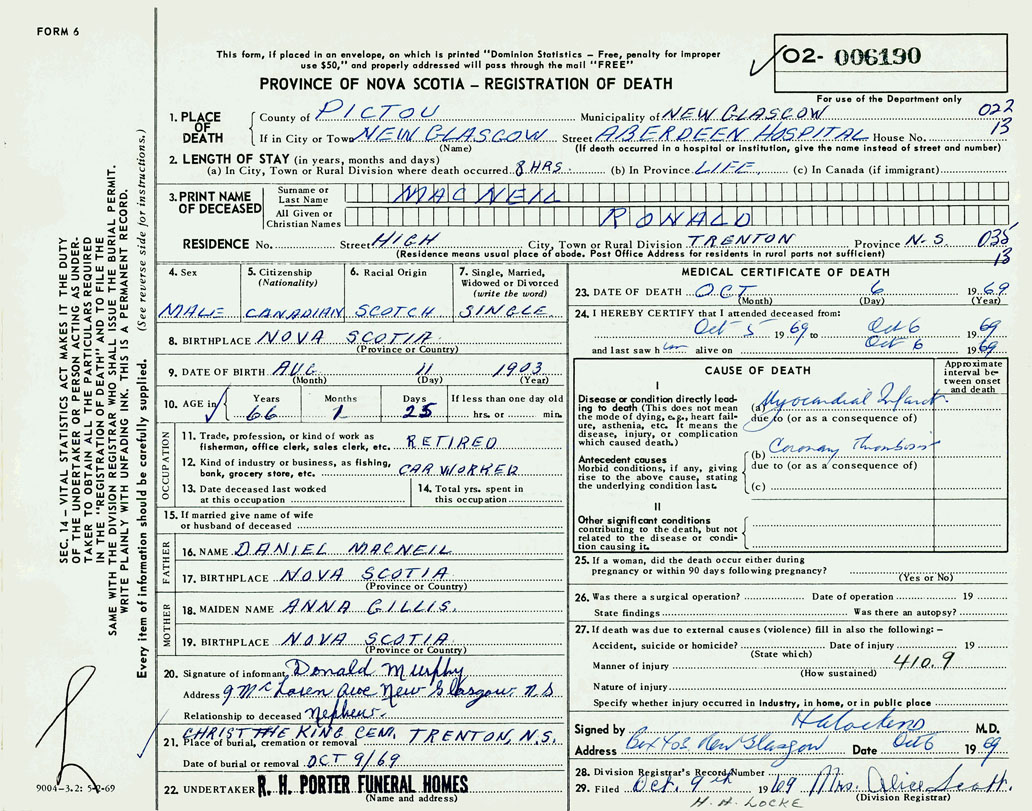 FORM 6
This form, if placed in an envelope, on which is printed "Dominion Statistics – Free, penalty for improper
use $50," and properly addressed will pass through the mail "FREE"
O2- 006190
For use of the Department only
PROVINCE OF NOVA SCOTIA – REGISTRATION OF DEATH
1. PLACE OF DEATH
County of PICTOU Municipality of NEW GLASGOW 022
If in City or Town NEW GLASGOW Street ABERDEEN HOSPITAL House No. 13
(Name) (If death occurred in a hospital or institution, give the name instead of street and number)
2. LENGTH OF STAY (in years, months and days)
(a) In City, Town or Rural Division where death occurred 8 HRS. (b) In Province LIFE (c) In Canada (if immigrant)
3. PRINT NAME OF DECEASED
Surname or Last Name MACNEIL
All Given or Christian Names RONALD
RESIDENCE No. Street HIGH City, Town or Rural Division TRENTON Province N.S. 035
(Residence means usual place of abode. Post Office Address for residents in rural parts not sufficient) 13
4. Sex MALE
5. Citizenship (Nationality) CANADIAN
6. Racial Origin SCOTCH
7. Single, Married, Widowed or Divorced (write the word) SINGLE
8. BIRTHPLACE NOVA SCOTIA
(Province or Country)
9. DATE OF BIRTH AUG 11 1903
(Month) (Day) (Year)
10. AGE in Years 66 Months 1 Days 25 If less than one day old hrs. or min.
OCCUPATION
11. Trade, profession, or kind of work as fisherman, office clerk, sales clerk, etc. RETIRED
12. Kind of industry or business, as fishing, bank, grocery store, etc. CAR WORKER
13. Date deceased last worked at this occupation
14. Total yrs. spent in this occupation
15. If married give name of wife or husband of deceased
FATHER
16. NAME DANIEL MACNEIL
17. BIRTHPLACE NOVA SCOTIA
(Province or Country)
MOTHER
18. MAIDEN NAME ANNA GILLIS.
19. BIRTHPLACE NOVA SCOTIA
(Province or Country)
20. Signature of informant Donald Murphy
Address 9 McLaren Ave New Glasgow N S
Relationship to deceased Nephew.
CHRIST THE KING CEM. TRENTON, N.S.
21. Place of burial, cremation or removal
Date of burial or removal OCT 9/69
22. UNDERTAKER R. H. PORTER FUNERAL HOMES
(Name and address)
MEDICAL CERTIFICATE OF DEATH
23. DATE OF DEATH OCT 6 1969
(Month) (Day) (Year)
24. I HEREBY CERTIFY that I attended deceased from:
Oct 5 1969 to Oct 6 69
and last saw him alive on Oct 6 1969
CAUSE OF DEATH
Approximate interval between onset and death
I
Disease or condition directly leading to death (This does not mean the mode of dying, e.g., heart failure, asthenia, etc. It means the disease, injury, or complication which caused death.)
(a) Myocardial Infarct.
due to (or as a consequence of)
Antecedent causes
Morbid conditions, if any, giving rise to the above cause, stating the underlying condition last.
(b) Coronary Thrombosis
due to (or as a consequence of)
(c)
II
Other significant conditions contributing to the death, but not related to the disease or condition causing it.
25. If a woman, did the death occur either during pregnancy or within 90 days following pregnancy?
(Yes or No)
26. Was there a surgical operation? Date of operation 19
State findings Was there an autopsy?
27. If death was due to external causes (violence) fill in also the following: –
Accident, suicide or homicide? Date of injury 19
(State which)
Manner of injury 410.9
(How sustained)
Nature of injury
Specify whether injury occurred in Industry, in home, or in public place
Signed by M.D.
Address Box 403 New Glasgow Date Oct 6 1969
28. Division Registrar's Record Number
29. Filed Oct. 9th 1969 Mrs. Alice Scott.
(Division Registrar)
H. H. LOCKE
SEC. 14 – VITAL STATISTICS ACT MAKES IT THE DUTY
OF THE UNDERTAKER OR PERSON ACTING AS UNDER-
TAKER TO OBTAIN ALL THE PARTICULARS REQUIRED
IN THE "REGISTRATION OF DEATH" AND TO FILE THE
SAME WITH THE DIVISION REGISTRAR WHO SHALL ISSUE THE BURIAL PERMIT.
WRITE PLAINLY WITH UNFADING INK. THIS IS A PERMANENT RECORD.
Every item of information should be carefully supplied. (See reverse side for instructions.)
9004–3.2: 5-2-69